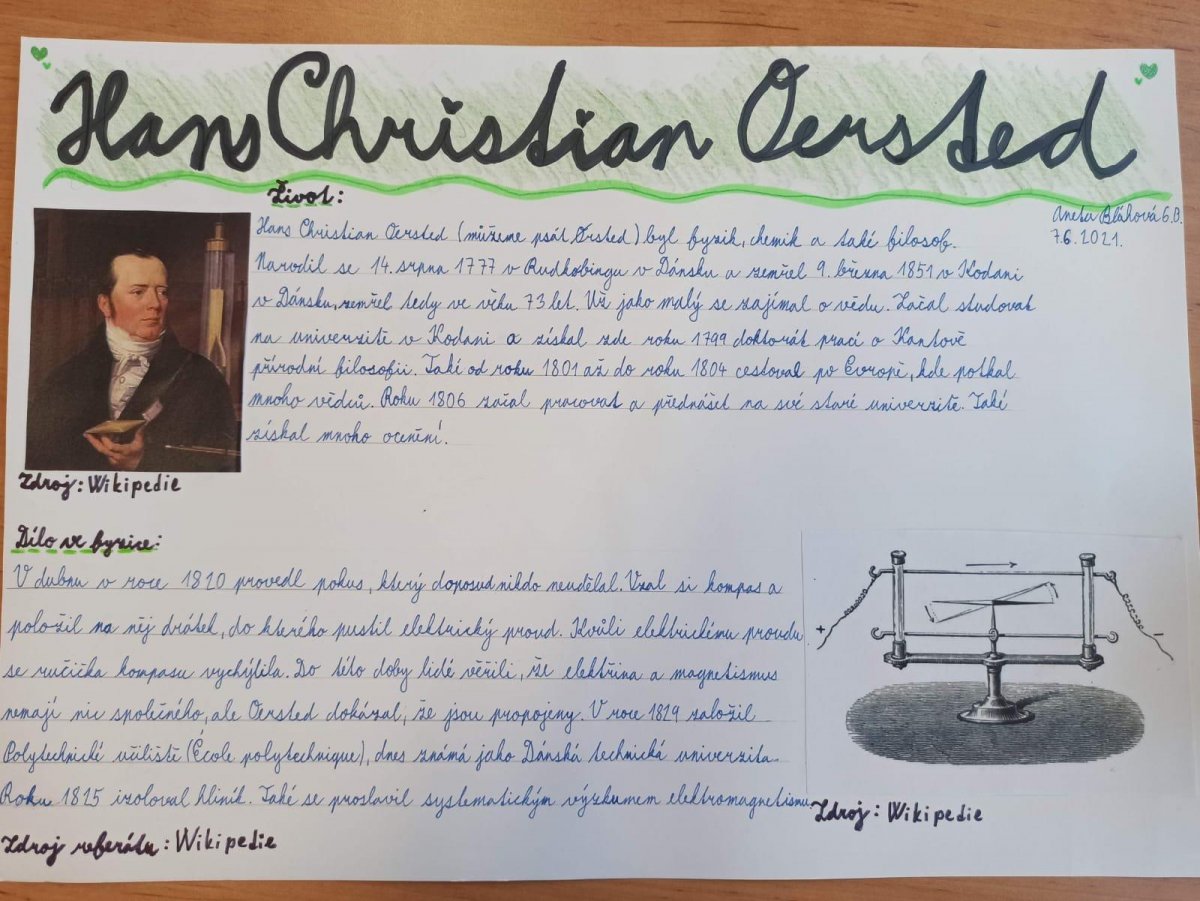 Hans Christian Oersted
Život:
Aneta Bláhová 6.B.
7.6. 2021.
Hans Christian Oersted (můžeme psát Ørsted) byl fyzik, chemik a také filosof.
Narodil se 14. srpna 1777 v Rudkobingu v Dánsku a zemřel 9. března 1851 v Kodani
v Dánsku, zemřel tedy ve věku 73 let. Už jako malý se zajímal o vědu. Začal studovat
na univerzitě v Kodani a získal zde roku 1799 doktorát prací o Kantově
přírodní filosofii. Také od roku 1801 až do roku 1804 cestoval po Evropě, kde potkal
mnoho vědců. Roku 1806 začal pracovat a přednášet na své staré univerzitě. Také
získal mnoho ocenění.
Zdroj: Wikipedie
Dílo ve fyzice:
V dubnu v roce 1820 provedl pokus, který doposud nikdo neudělal. Vzal si kompas a
položil na něj drátek, do kterého pustil elektrický proud. Kvůli elektrickému proudu
se ručička kompasu vychýlila. Do této doby lidé věřili, že elektřina a magnetismus
nemají nic společného, ale Oersted dokázal, že jsou propojeny. V roce 1829 založil
Polytechnické učiliště (École polytechnique), dnes známá jako Dánská technická univerzita.
Roku 1825 izoloval hliník. Také se proslavil systematickým výzkumem elektromagnetismu
+ -
Zdroj: Wikipedie
Zdroj referátu: Wikipedie